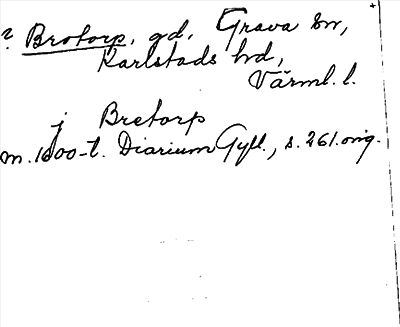 ? Brotorp, gd, Grava sn,
Karlstads hd,
Värml. l.
j Bretorp
m. 1600-t. Diarium Gyll., s. 261. orig.